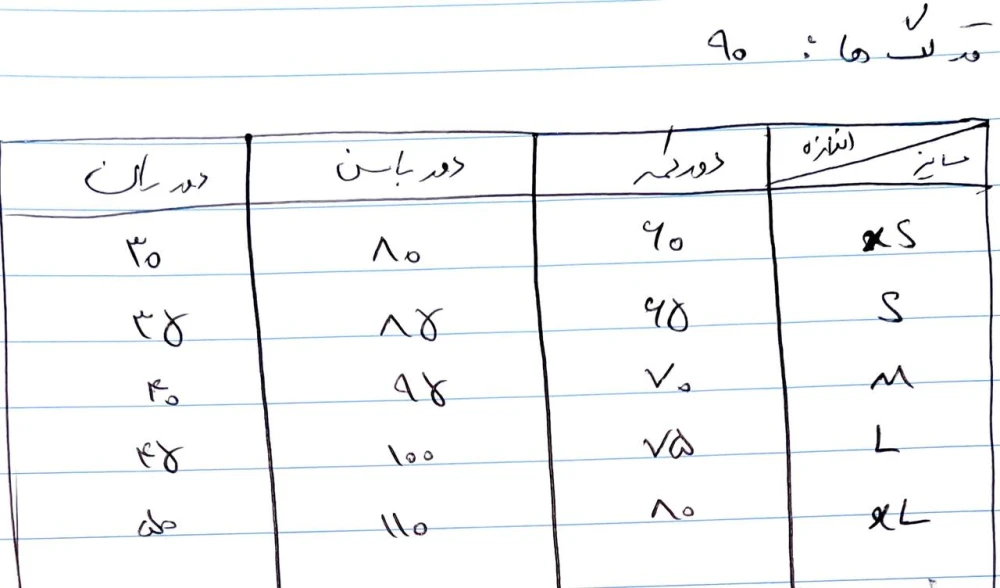 قد لگ ها : ۹۰
سایز اندازه دور کمر دور باسن دور ران
xS ۶۰ ۸۰ ۳۰
S ۶۵ ۸۵ ۳۵
M ۷۰ ۹۵ ۴۰
L ۷۵ ۱۰۰ ۴۵
xL ۸۰ ۱۱۰ ۵۰